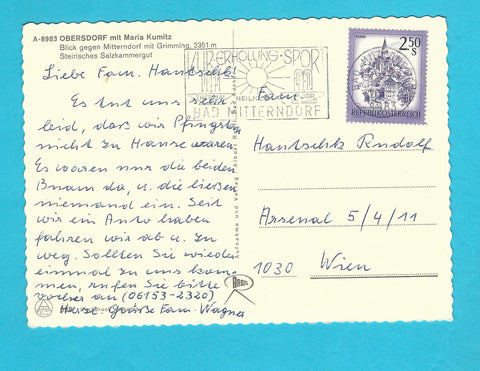 A-8983 OBERSDORF mit Maria Kumitz
Blick gegen Mitterndorf mit Grimming, 2351 m
Steirisches Salzkammergut
KUR ERHOLUNG SPORT
HEILKLIMA
BAD MITTERNDORF
2.50 S
REPUBLIK ÖSTERREICH
Liebe Fam. Hantschk!
Es tut uns sehr
leid, daß wir Pfingsten
nicht zu Hause waren.
Es waren nur die beiden
Buam da, u. die ließen
niemand ein. Seit
wir ein Auto haben
fahren wir ab u. zu
weg. Sollten Sie wieder
einmal zu uns kom-
men, rufen Sie bitte
vorher an (06153-2320)
Herzl. Grüße Fam. Wagner
Aufnahme und Verlag
Fam.
Hantschk Rudolf
Arsenal 5/4/11
1030 Wien